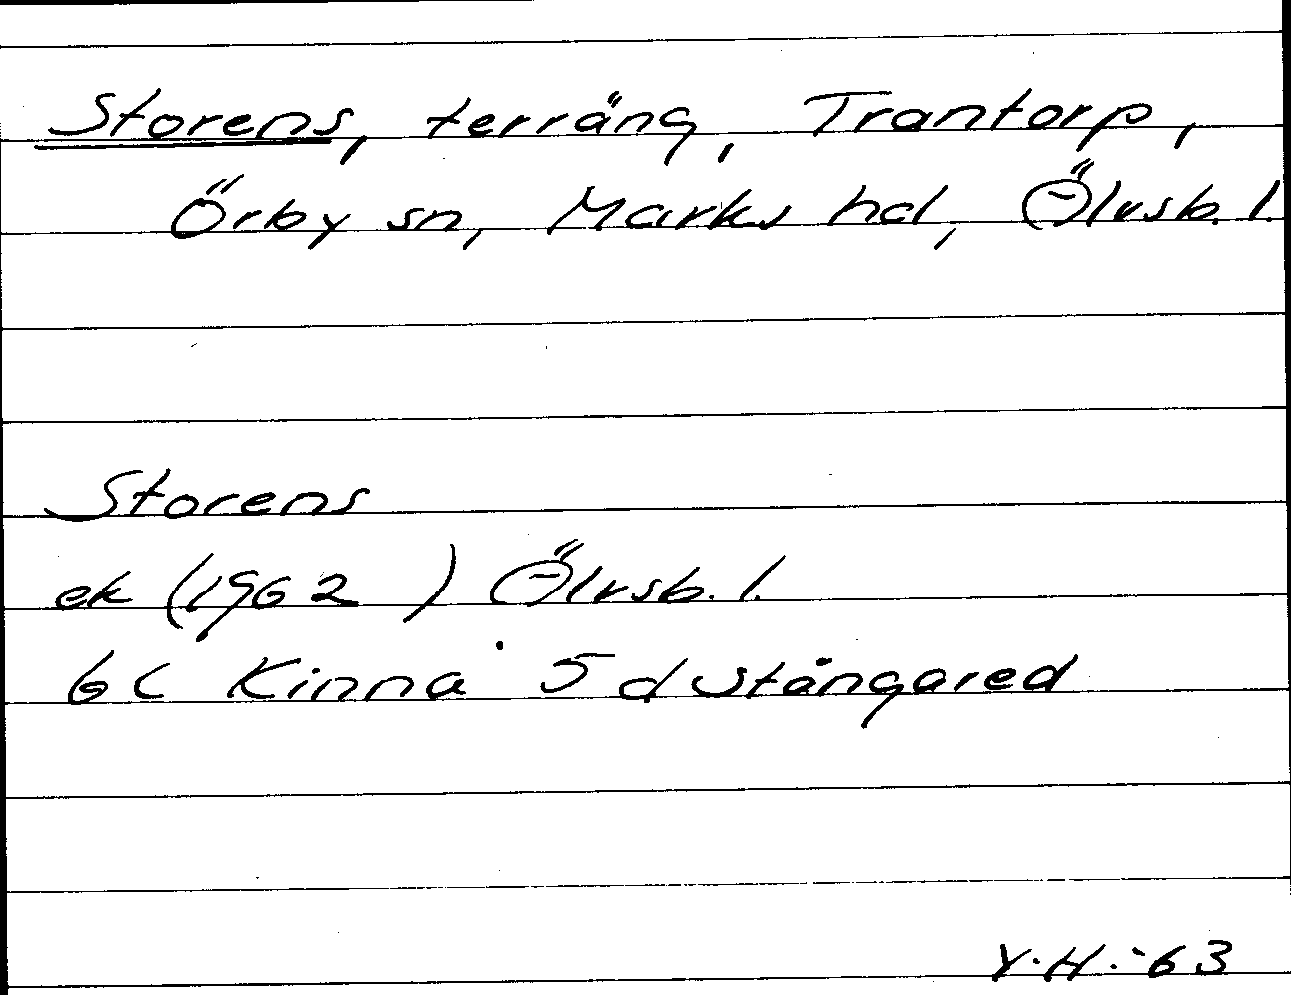 Storens, terräng, Trantorp,
Örby sn, Marks hd, Älvsb. l.
Storens
ek (1962 ) Älvsb. l.
6 C Kinna 5 d Stångared
Y.H. -63